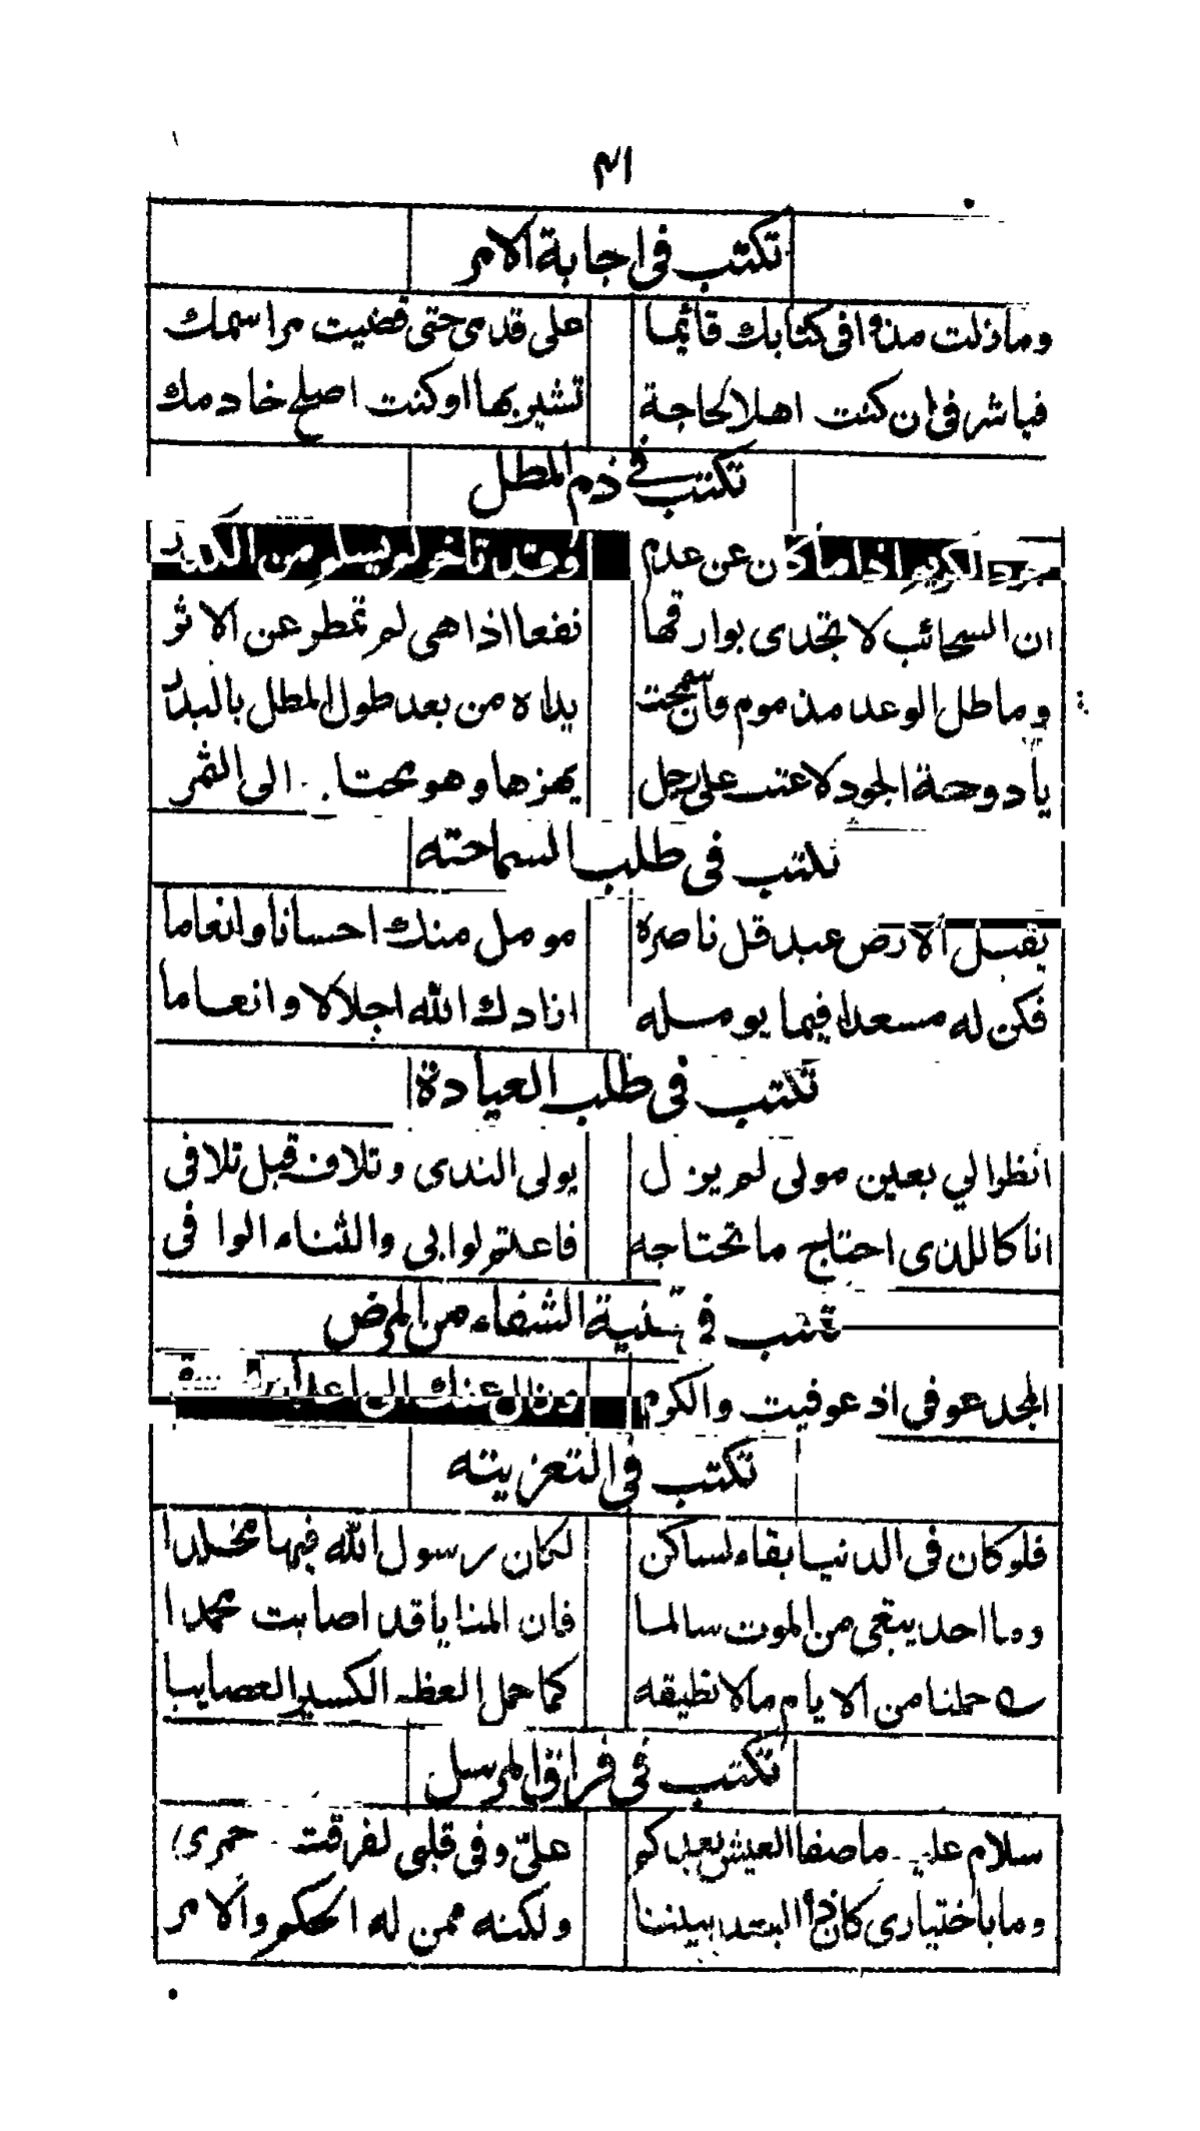 ٣١
تكتب فى اجابة الامر
وما ذلت مذ وافى كتابك قائما على قدمى حتى قضيت مراسمك
فباشر فى ان كنت اهلا لحاجة تشير بها او كنت اصلح خادمك
تكتب فى ذم المطل
جود الكريم اذا ما كان عن عدم وقد تاخر لم يسلم من الكدر
ان السحائب لا تجدى بوارقها نفعا اذا هى لم تمطر عن الاثر
وما طل الوعد مذموم وان سمحت يداه من بعد طول المطل بالبدر
يا دوحة الجود لا عتب على رجل يهزها وهو محتا الى الثمر
تكتب فى طلب السماحته
يقبل الارض عبد قل ناصره مومل منك احسانا وانعاما
فكن له مسعدا فيما يومله انا دك الله اجلالا وانعاما
تكتب فى طلب العيادة
انظر الي بعين مولى لم يزل يولى الندى وتلاف قبل تلافى
انا كاللذى احتاج ما تحتاجه فاعلتم لوابى والثناء الوافى
تكتب فى تهنية الشفاء من المرض
المجد عوفى اذ عوفيت والكرم وزال عنك الى اعدا
تكتب فى التعزيته
فلو كان فى الدنيا بقاء لساكن لكان رسول الله فيها مخلدا
وما احد يبقى من الموت سالما فان المنايا قد اصابت محمدا
حملنا من الايام ما لا نطيقه كما حمل العظم الكسير العصايبا
تكتب فى فراق المرسل
سلام عليـ ما صفا العيش بعد كم علىّ وفى قلبى لفرقت جمرى
وما باختيارى كان ذا البعد بيننا ولكنه ممن له الحكم والامر